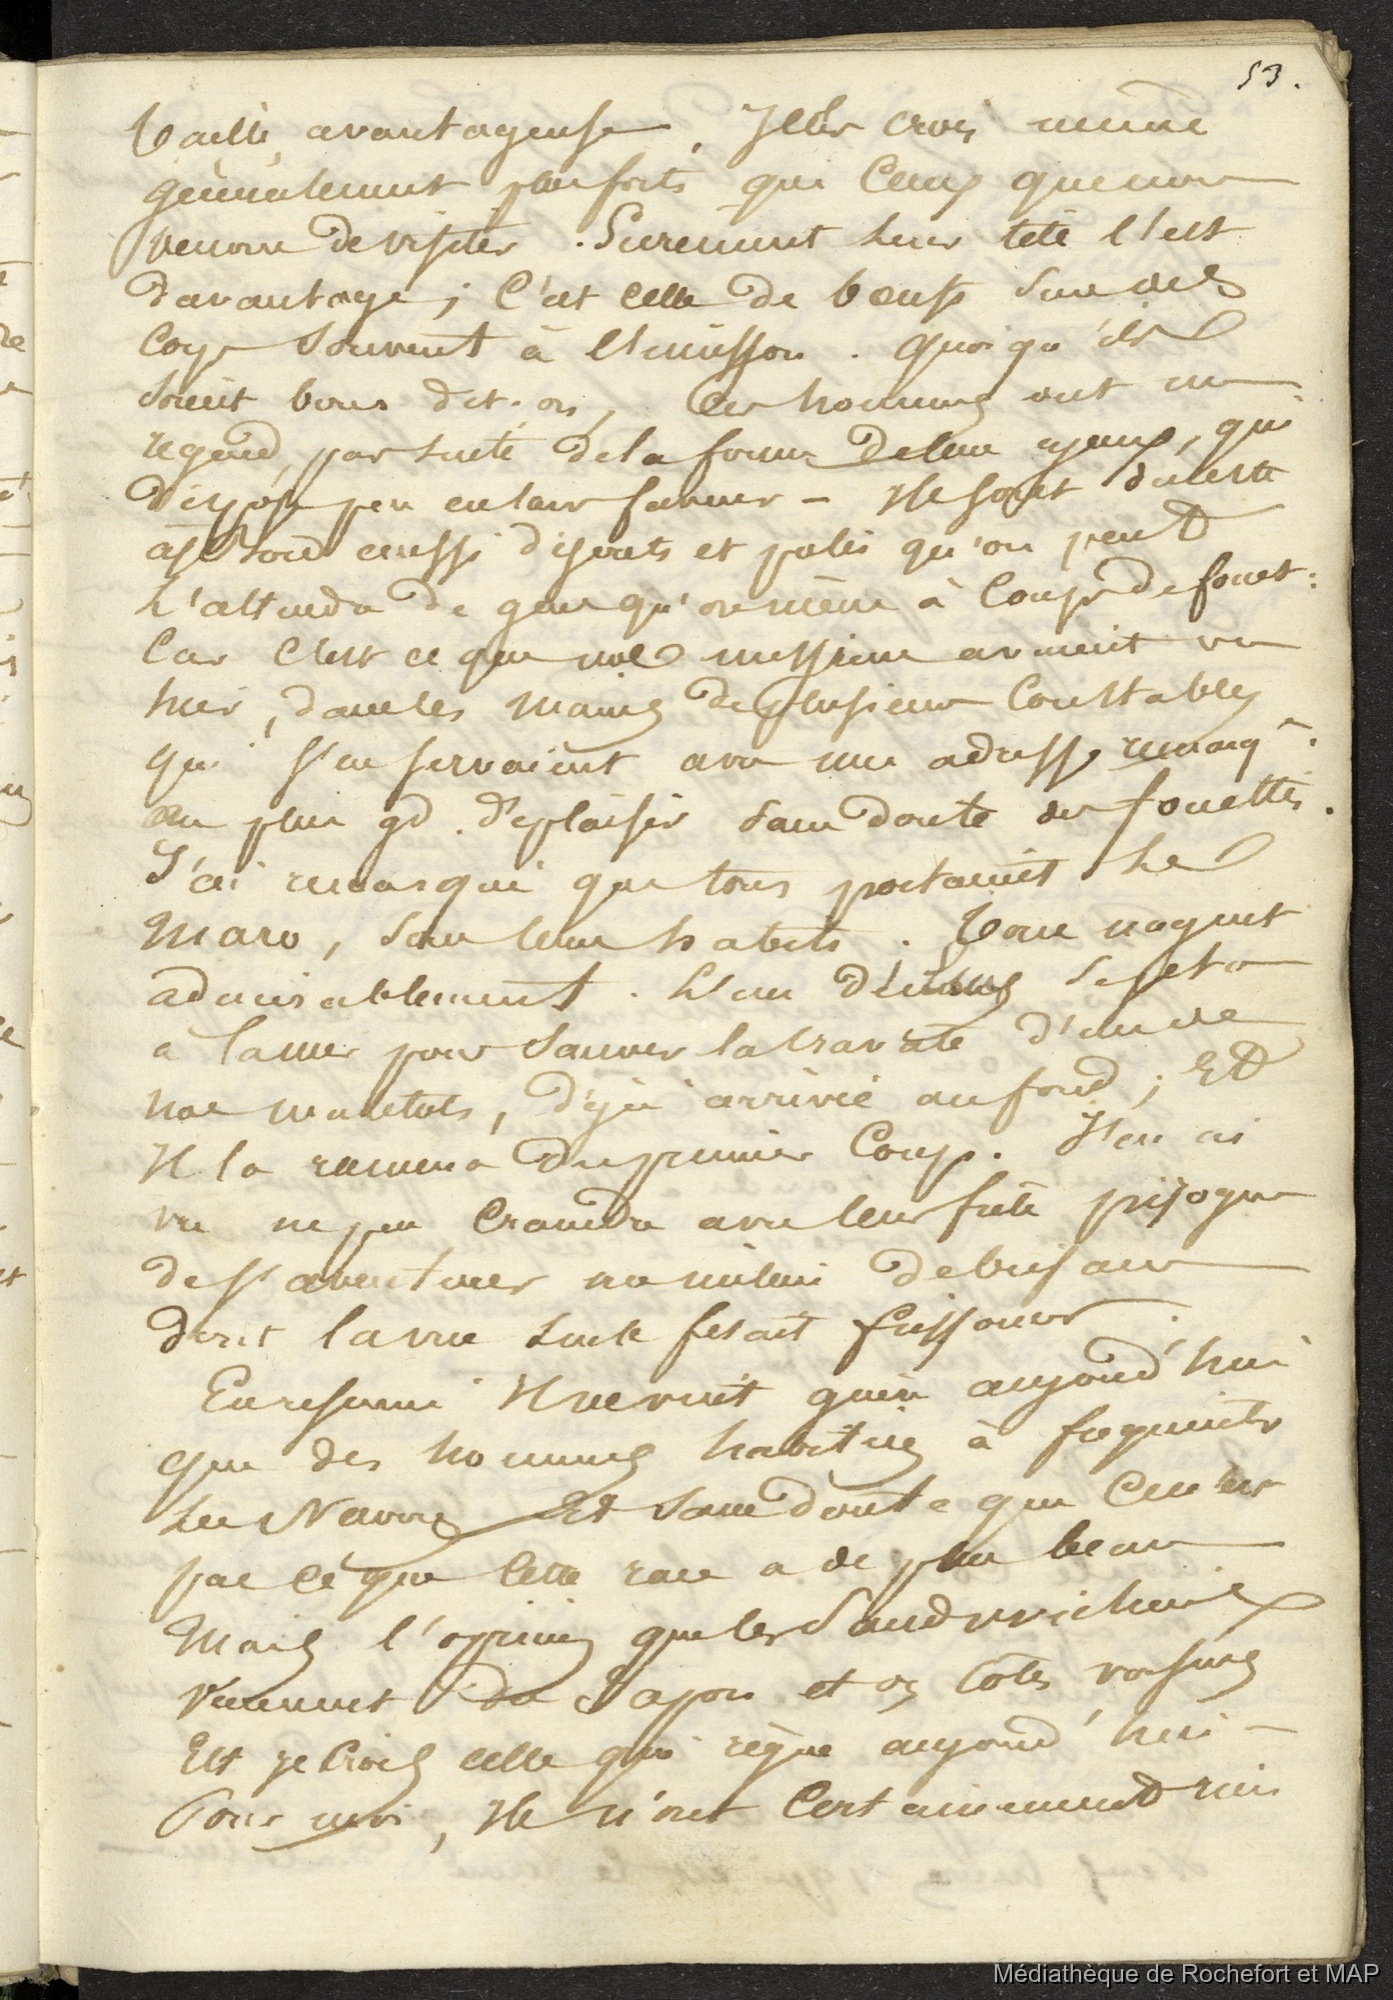 53.
taille avantageuse, Je les crois même
généralement plus forts que ceux que nous
venons de visiter. Surement leur tête l'est
davantage ; c'est celle de boeufs sur des
corps souvent à l'unisson. quoiqu'ils
soient bons dit-on, ces hommes ont un
regard, par suite de la forme de leur yeux, qui
dispose peu en leur faveur - Ils sont du reste
à bord aussi discrets et polis qu'on peut
l'attendre de gens qu'on mène à coups de fouet :
car c'est ce que nos messieurs avaient vu
hier, dans les mains de plusieurs Constables
qui s'en servaient avec une adresse remarq.
au plus gd. déplaisir sans doute des fouettés.
J'ai remarqué que tous portaient le
Maro, sous leurs habits. Tous nagent
admirablement. L'un d'eux se jeta
à la mer pour sauver la cravate d'un de
nos matelots, déjà arrivée au fond ; Et
Il la ramena du premier coup. J'en ai
vu ne pas craindre avec leur frêle pirogue
de s'aventurer au milieu de brisans
dont la vue seule fesait frissoner.
En resumé Il ne vint guère aujourd'hui
que des hommes habitués à frequenter
les Navires Et sans doute que ce n'est
pas ce que cette race a de plus beau
Mais l'opinion que les Sandwichiens
viennent du Japon et des côtes voisines
Est je crois celle qui règne aujourd'hui -
Pour moi, Ils n'ont certainement rien
Médiathèque de Rochefort et MAP